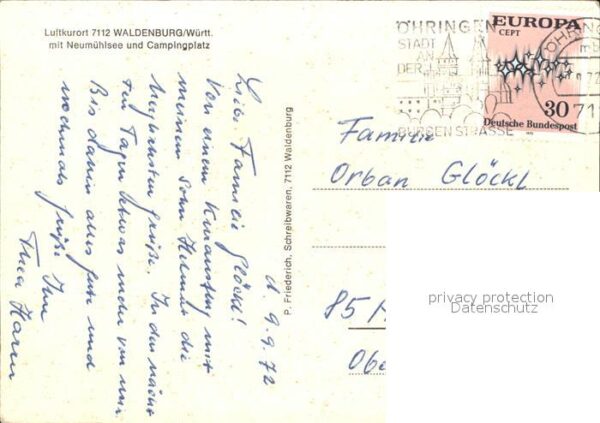 Luftkurort 7112 WALDENBURG/Württ.
mit Neumühlsee und Campingplatz
d. 9.9.72
Liebe Familie Glöckl!
Von einem Kurausflug mit
meinem Sohn Helmut die
herzlichsten Grüße. In den nächst
ten Tagen etwas mehr von mir.
Bis dahin alles gute und
nochmals Grüße Ihre
Thea
P. Friederich, Schreibwaren, 7112 Waldenburg
ÖHRINGEN
STADT
AN
DER
BURGENSTRASSE
EUROPA
CEPT
30
Deutsche Bundespost
ÖHRING
71
Familie
Orban Glöckl
85
Obe
privacy protection
Datenschutz